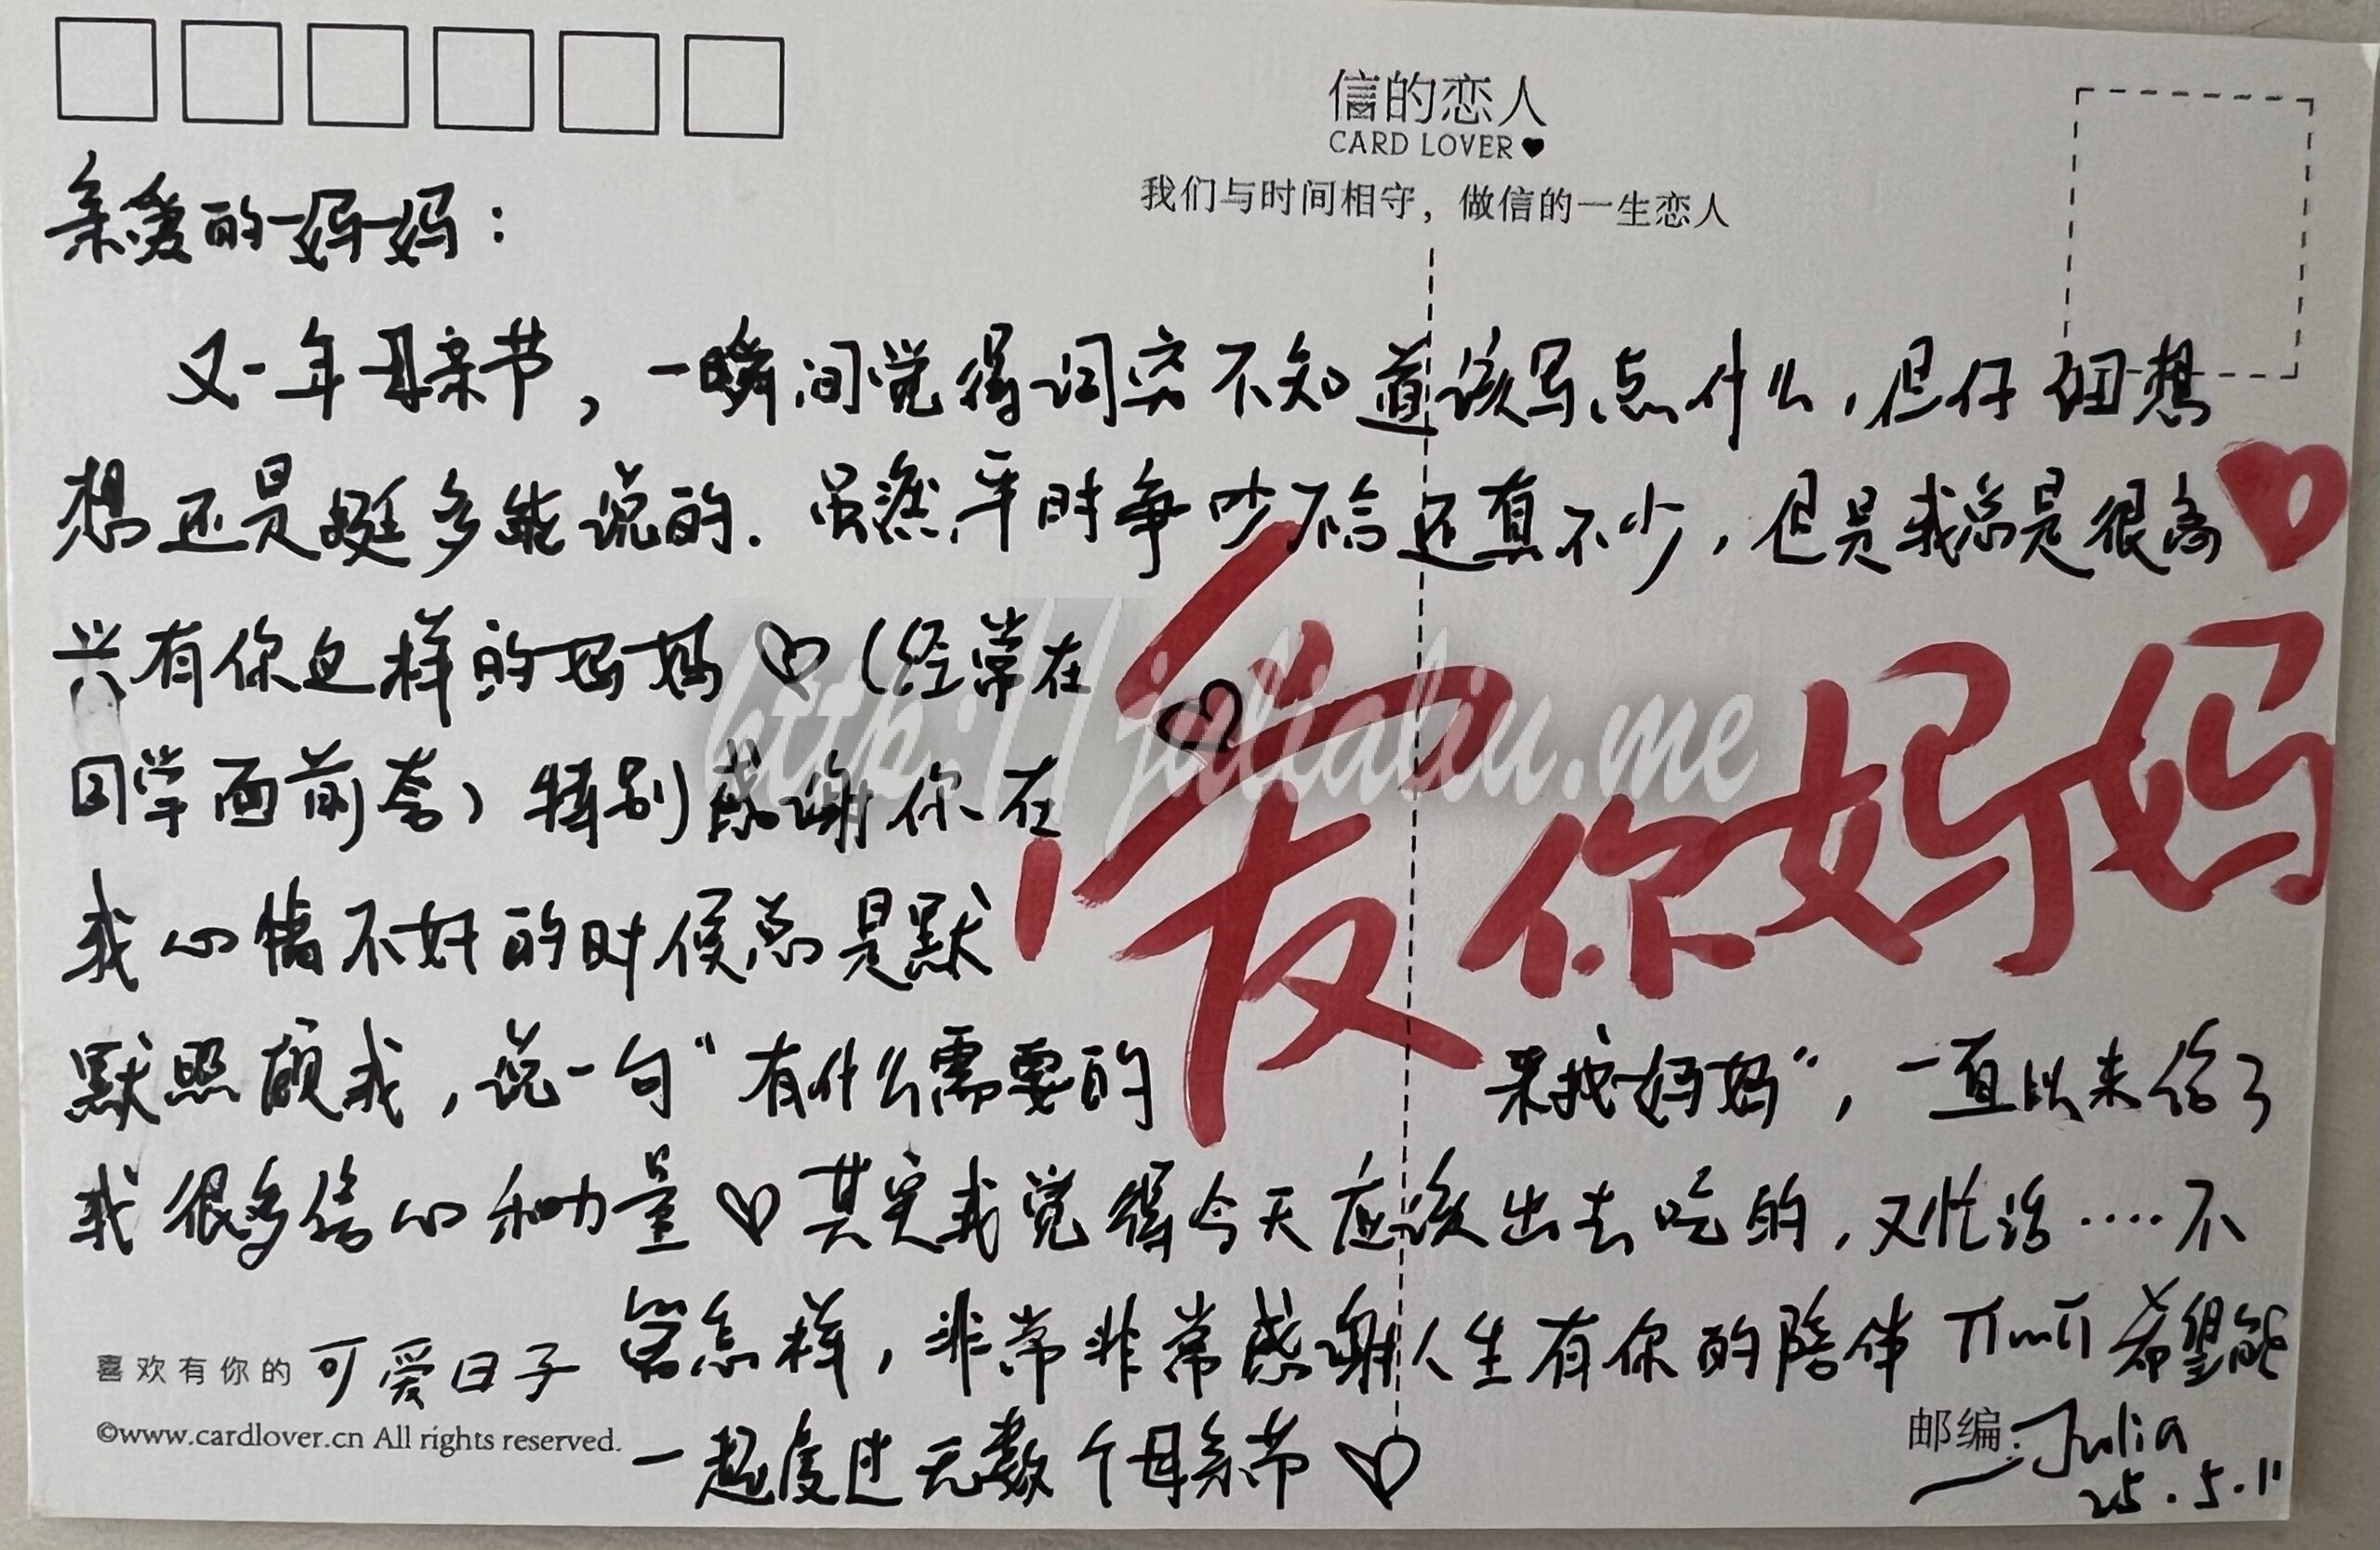 信的恋人
CARD LOVER
我们与时间相守，做信的一生恋人
亲爱的妈妈：
又一年母亲节，一瞬间觉得词穷不知道该写点什么，但仔细想
想还是挺多能说的．虽然平时争吵 还真不少，但是我总是很高
兴有你这样的妈妈♡（经常在
同学面前夸）特别感谢你在
我心情不好的时候总是默
默照顾我，说一句“有什么需要的 来找妈妈”，一直以来给了
我很多信心和力量♡其实我觉得今天应该出去吃的，又忙活····不
管怎样，非常非常感谢人生有你的陪伴 TTmTT 希望能
一起度过无数个母亲节♡
爱你妈妈
http://julialiu.me
喜欢有你的 可爱日子
©www.cardlover.cn All rights reserved.
邮编：
Julia
25.5.11